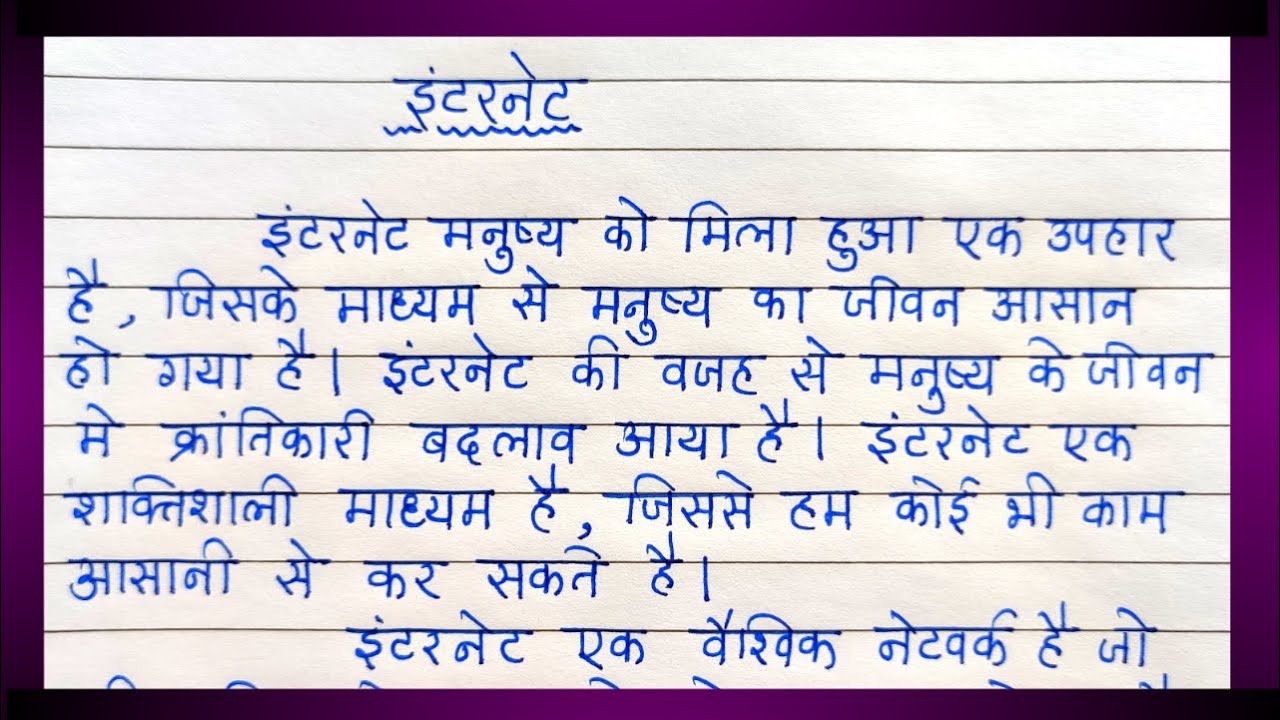 इंटरनेट
इंटरनेट मनुष्य को मिला हुआ एक उपहार
है, जिसके माध्यम से मनुष्य का जीवन आसान
हो गया है। इंटरनेट की वजह से मनुष्य के जीवन
मे क्रांतिकारी बदलाव आया है। इंटरनेट एक
शक्तिशाली माध्यम है, जिससे हम कोई भी काम
आसानी से कर सकते है।
इंटरनेट एक वैश्विक नेटवर्क है जो